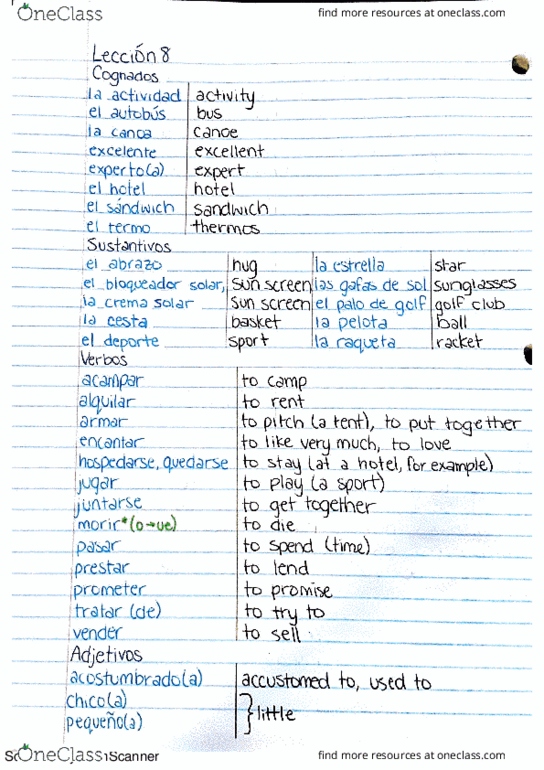 OneClass find more resources at oneclass.com
Lección 8
Cognados
la actividad activity
el autobús bus
la canoa canoe
excelente excellent
experto(a) expert
el hotel hotel
el sándwich sandwich
el termo thermos
Sustantivos
el abrazo hug la estrella star
el bloqueador solar, sun screen las gafas de sol sunglasses
la crema solar sun screen el palo de golf golf club
la cesta basket la pelota ball
el deporte sport la raqueta racket
Verbos
acampar to camp
alquilar to rent
armar to pitch (a tent), to put together
encantar to like very much, to love
hospedarse, quedarse to stay (at a hotel, for example)
jugar to play (a sport)
juntarse to get together
morir*(o→ue) to die
pasar to spend (time)
prestar to lend
prometer to promise
tratar (de) to try to
vender to sell
Adjetivos
acostumbrado(a) accustomed to, used to
chico(a)
pequeño(a) } little
OneClass Scanner find more resources at oneclass.com